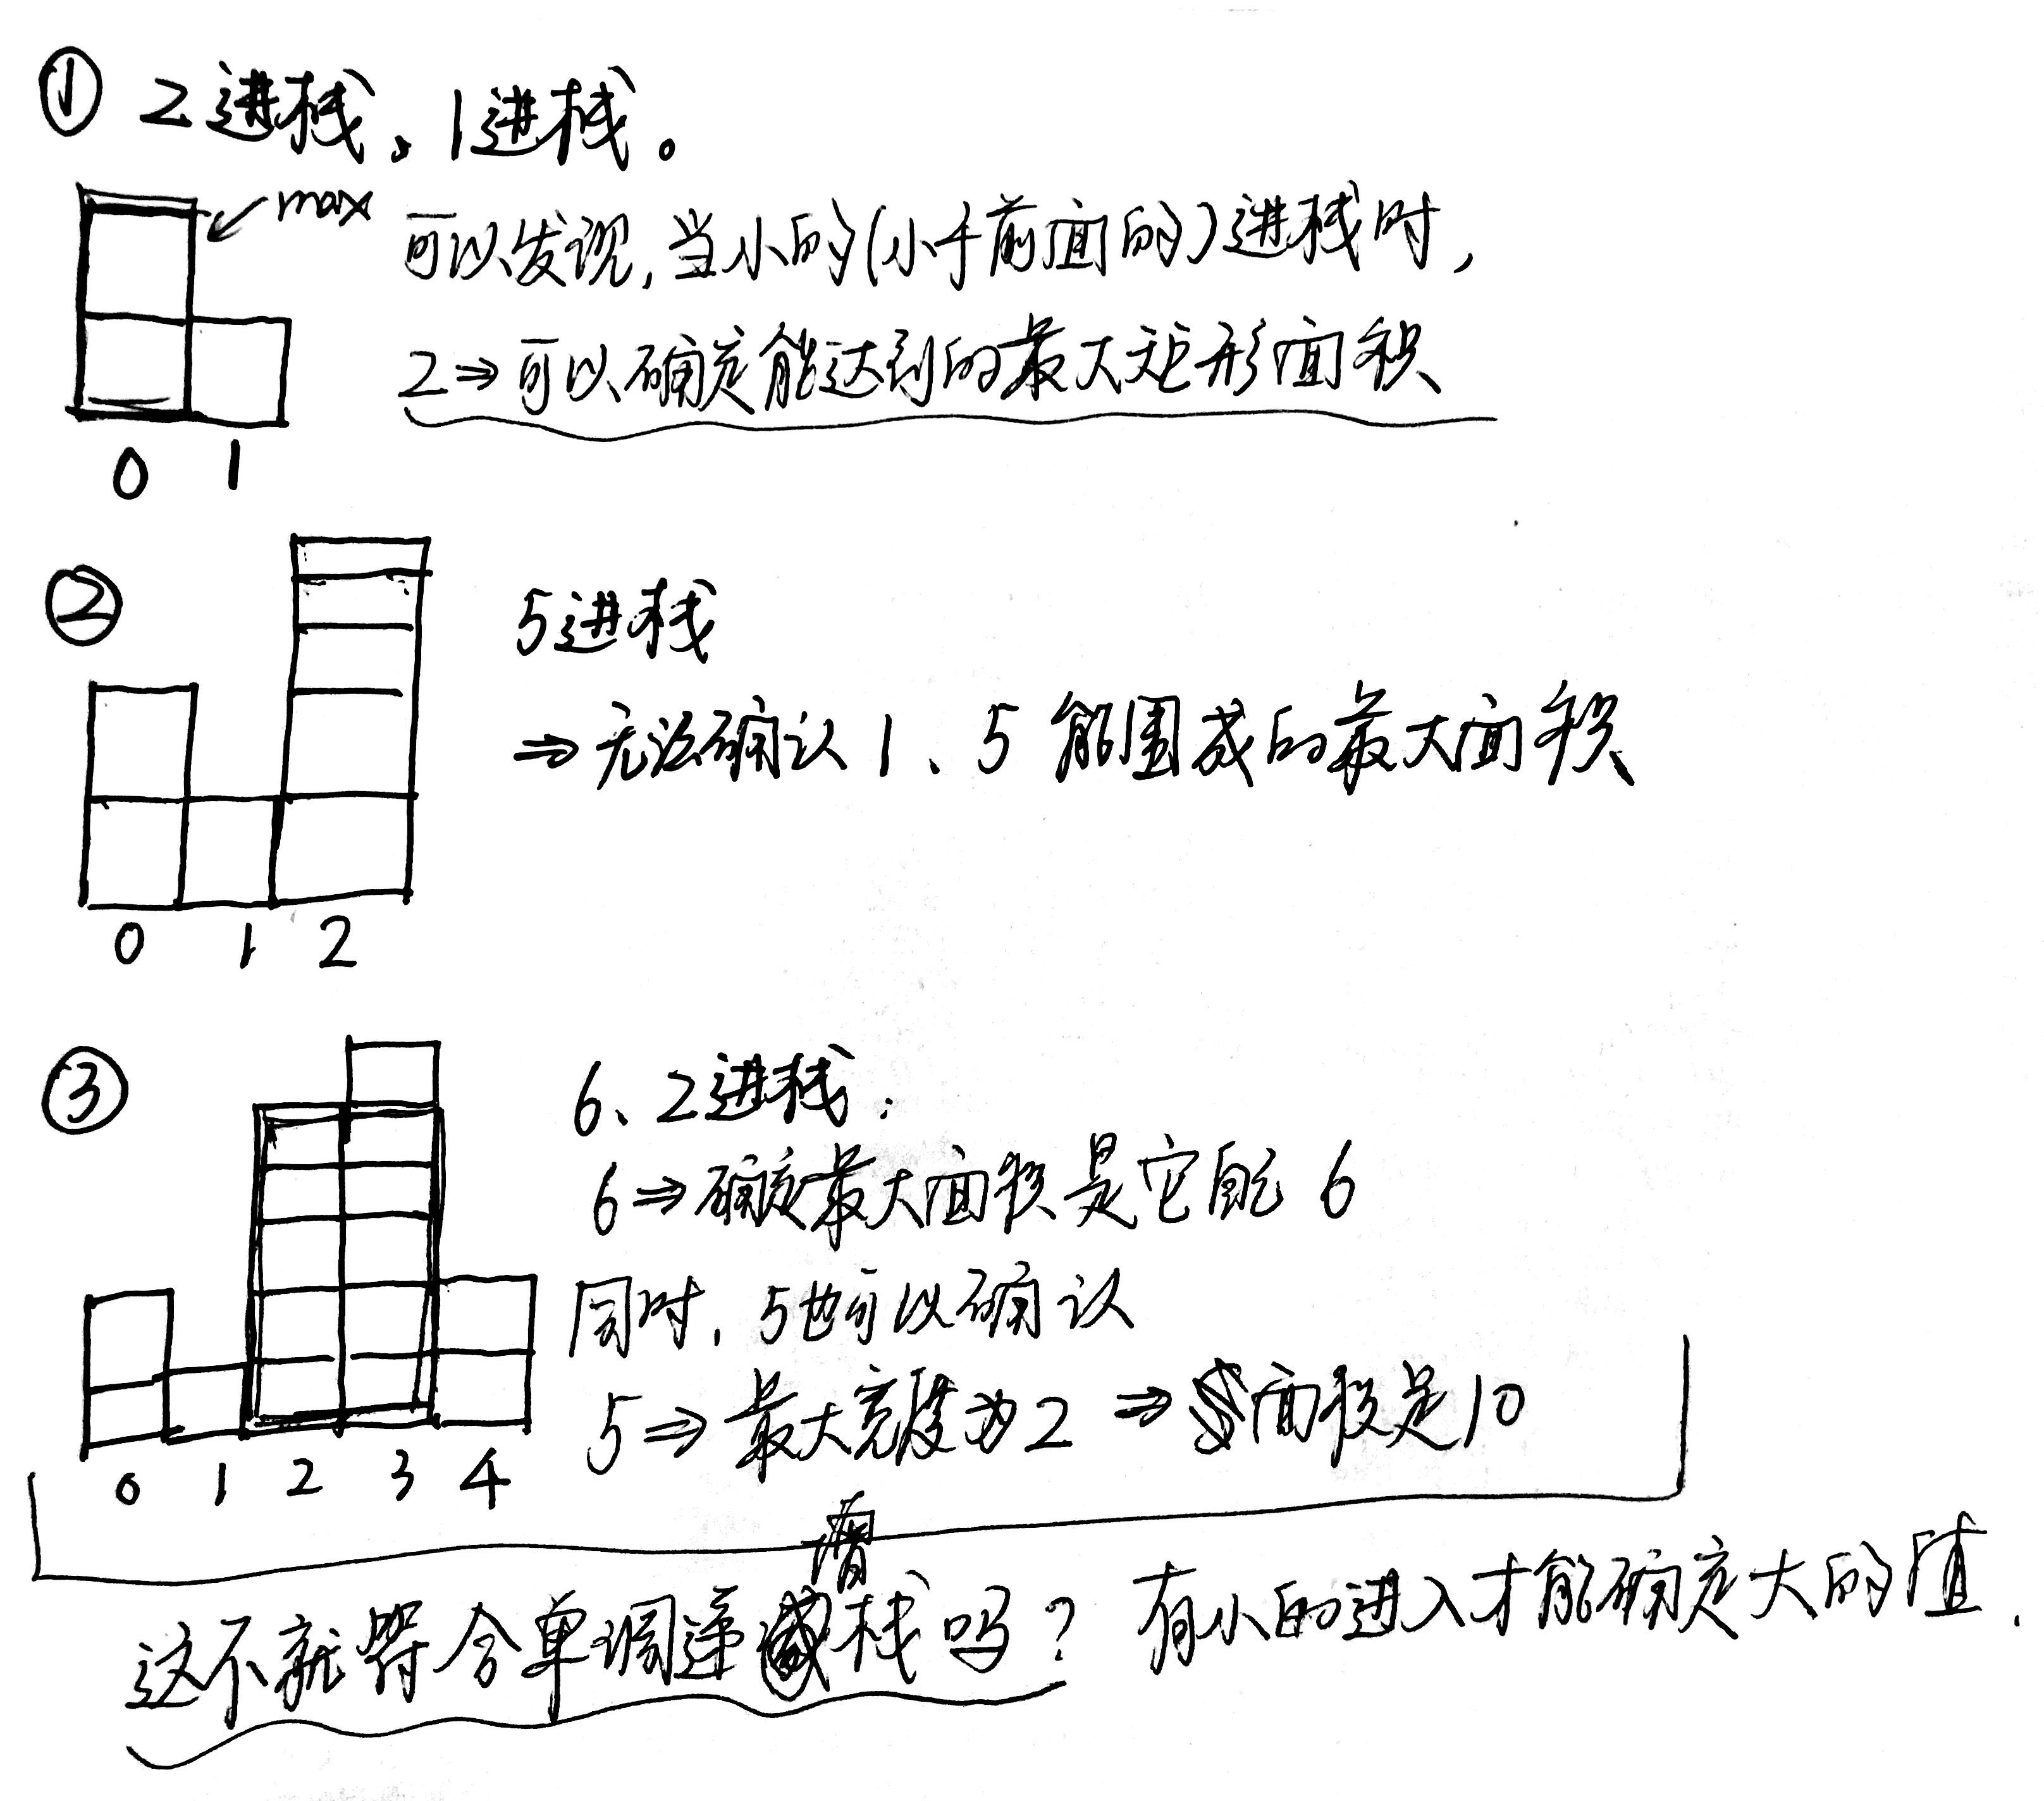 ① 2进栈、1进栈。
max
可以发现,当小的(小于前面的)进栈时,
2⇒可以确定能达到的最大矩形面积
0 1
②
5进栈
⇒无法确认1、5能围成的最大面积
0 1 2
③
6、2进栈:
6⇒确定最大面积是它自己6
同时,5也可以确认
5⇒最大宽度为2⇒面积是10
0 1 2 3 4
增
这不就符合单调递栈吗?有小的进入才能确定大的值.